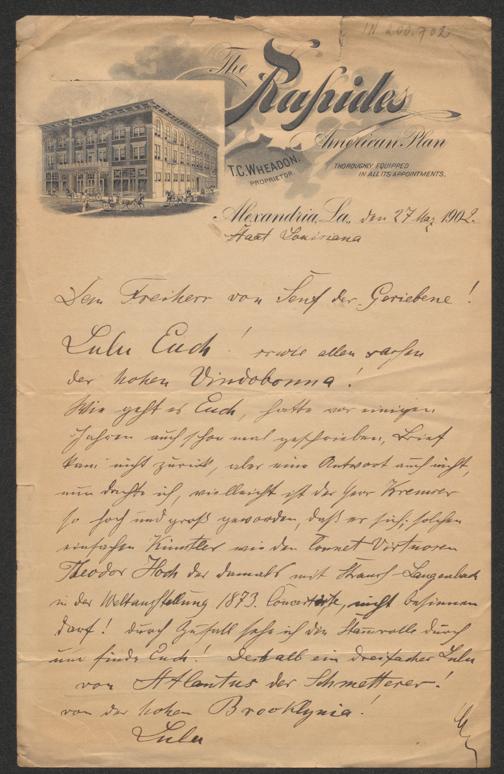 IN 200.702
The
Rapides
American Plan
T.C. WHEADON.
PROPRIETOR.
THOROUGHLY EQUIPPED
IN ALL ITS APPOINTMENTS.
Alexandria, La, den 27 May 1902.
Staat Louisiana
Dem Freiherr von Senf der Geriebene!
Lulu Euch! sowie allen
der hohen Vindobonna!
Wie geht es Euch, hatte vor einigen
Jahren auch schon mal geschrieben, Brief
kam nicht zurück, aber eine Antwort auch nicht,
nun dachte ich, vielleicht ist der Herr Kremser
so hoch und groß geworden, daß er sich, solchen
einfachen Künstler wie den Cornet Virtuosen
Theodor Hoch der damals mit Strauß-Langenbach
in der Weltausstellung 1873. Concertirte, nicht besinnen
darf! durch Zufall sehe ich den Stammrolle durch
und finde Euch! Deshalb ein dreifacher Lulu
von Atlantus der Schmetterer!
von der hohen Brooklynia!
Lulu